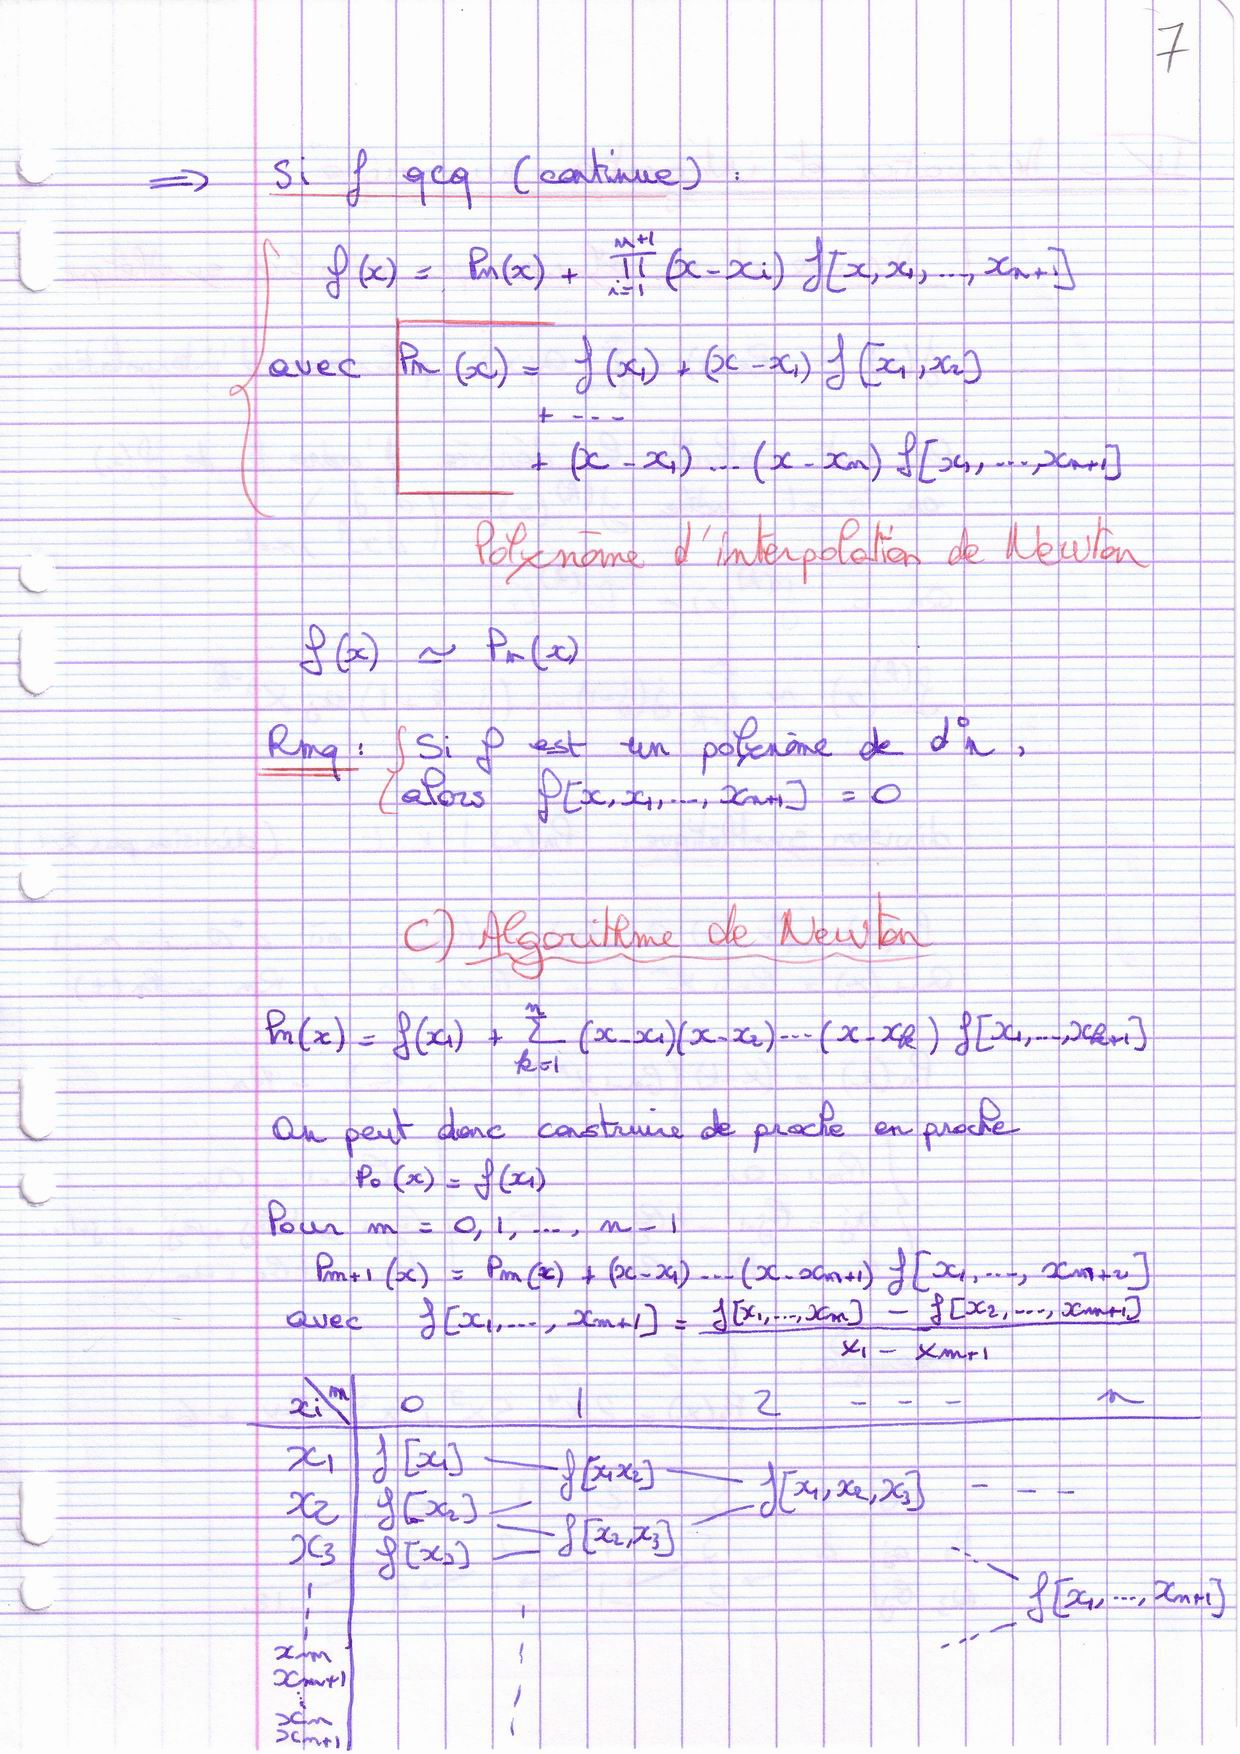 7
⟹ Si f qcq (continue) :
f(x) = Pn(x) + ∏_{i=1}^{n+1} (x-xi) f[x,x1,...,xn+1]
avec Pn(x) = f(x1) + (x-x1) f[x1,x2]
+ ---
+ (x-x1)...(x-xn) f[x1,...,xn+1]
Polynôme d'interpolation de Newton
f(x) ≃ Pn(x)
Rmq : Si f est un polynôme de d°n,
alors f[x,x1,...,xn+1] = 0
C) Algorithme de Newton
Pn(x) = f(x1) + ∑_{k=1}^{n} (x-x1)(x-x2)...(x-xk) f[x1,...,xk+1]
On peut donc construire de proche en proche
P0(x) = f(x1)
Pour m = 0,1,...,n-1
Pm+1(x) = Pm(x) + (x-x1)...(x-xm+1) f[x1,...,xm+2]
avec f[x1,...,xm+1] = (f[x1,...,xm] - f[x2,...,xm+1]) / (x1 - xm+1)
xi \ m 0 1 2 - - - n
x1 f[x1] f[x1x2] f[x1,x2,x3] - - -
x2 f[x2] f[x2,x3]
x3 f[x3]
f[x1,...,xn+1]
xm
xm+1
xn
xn+1